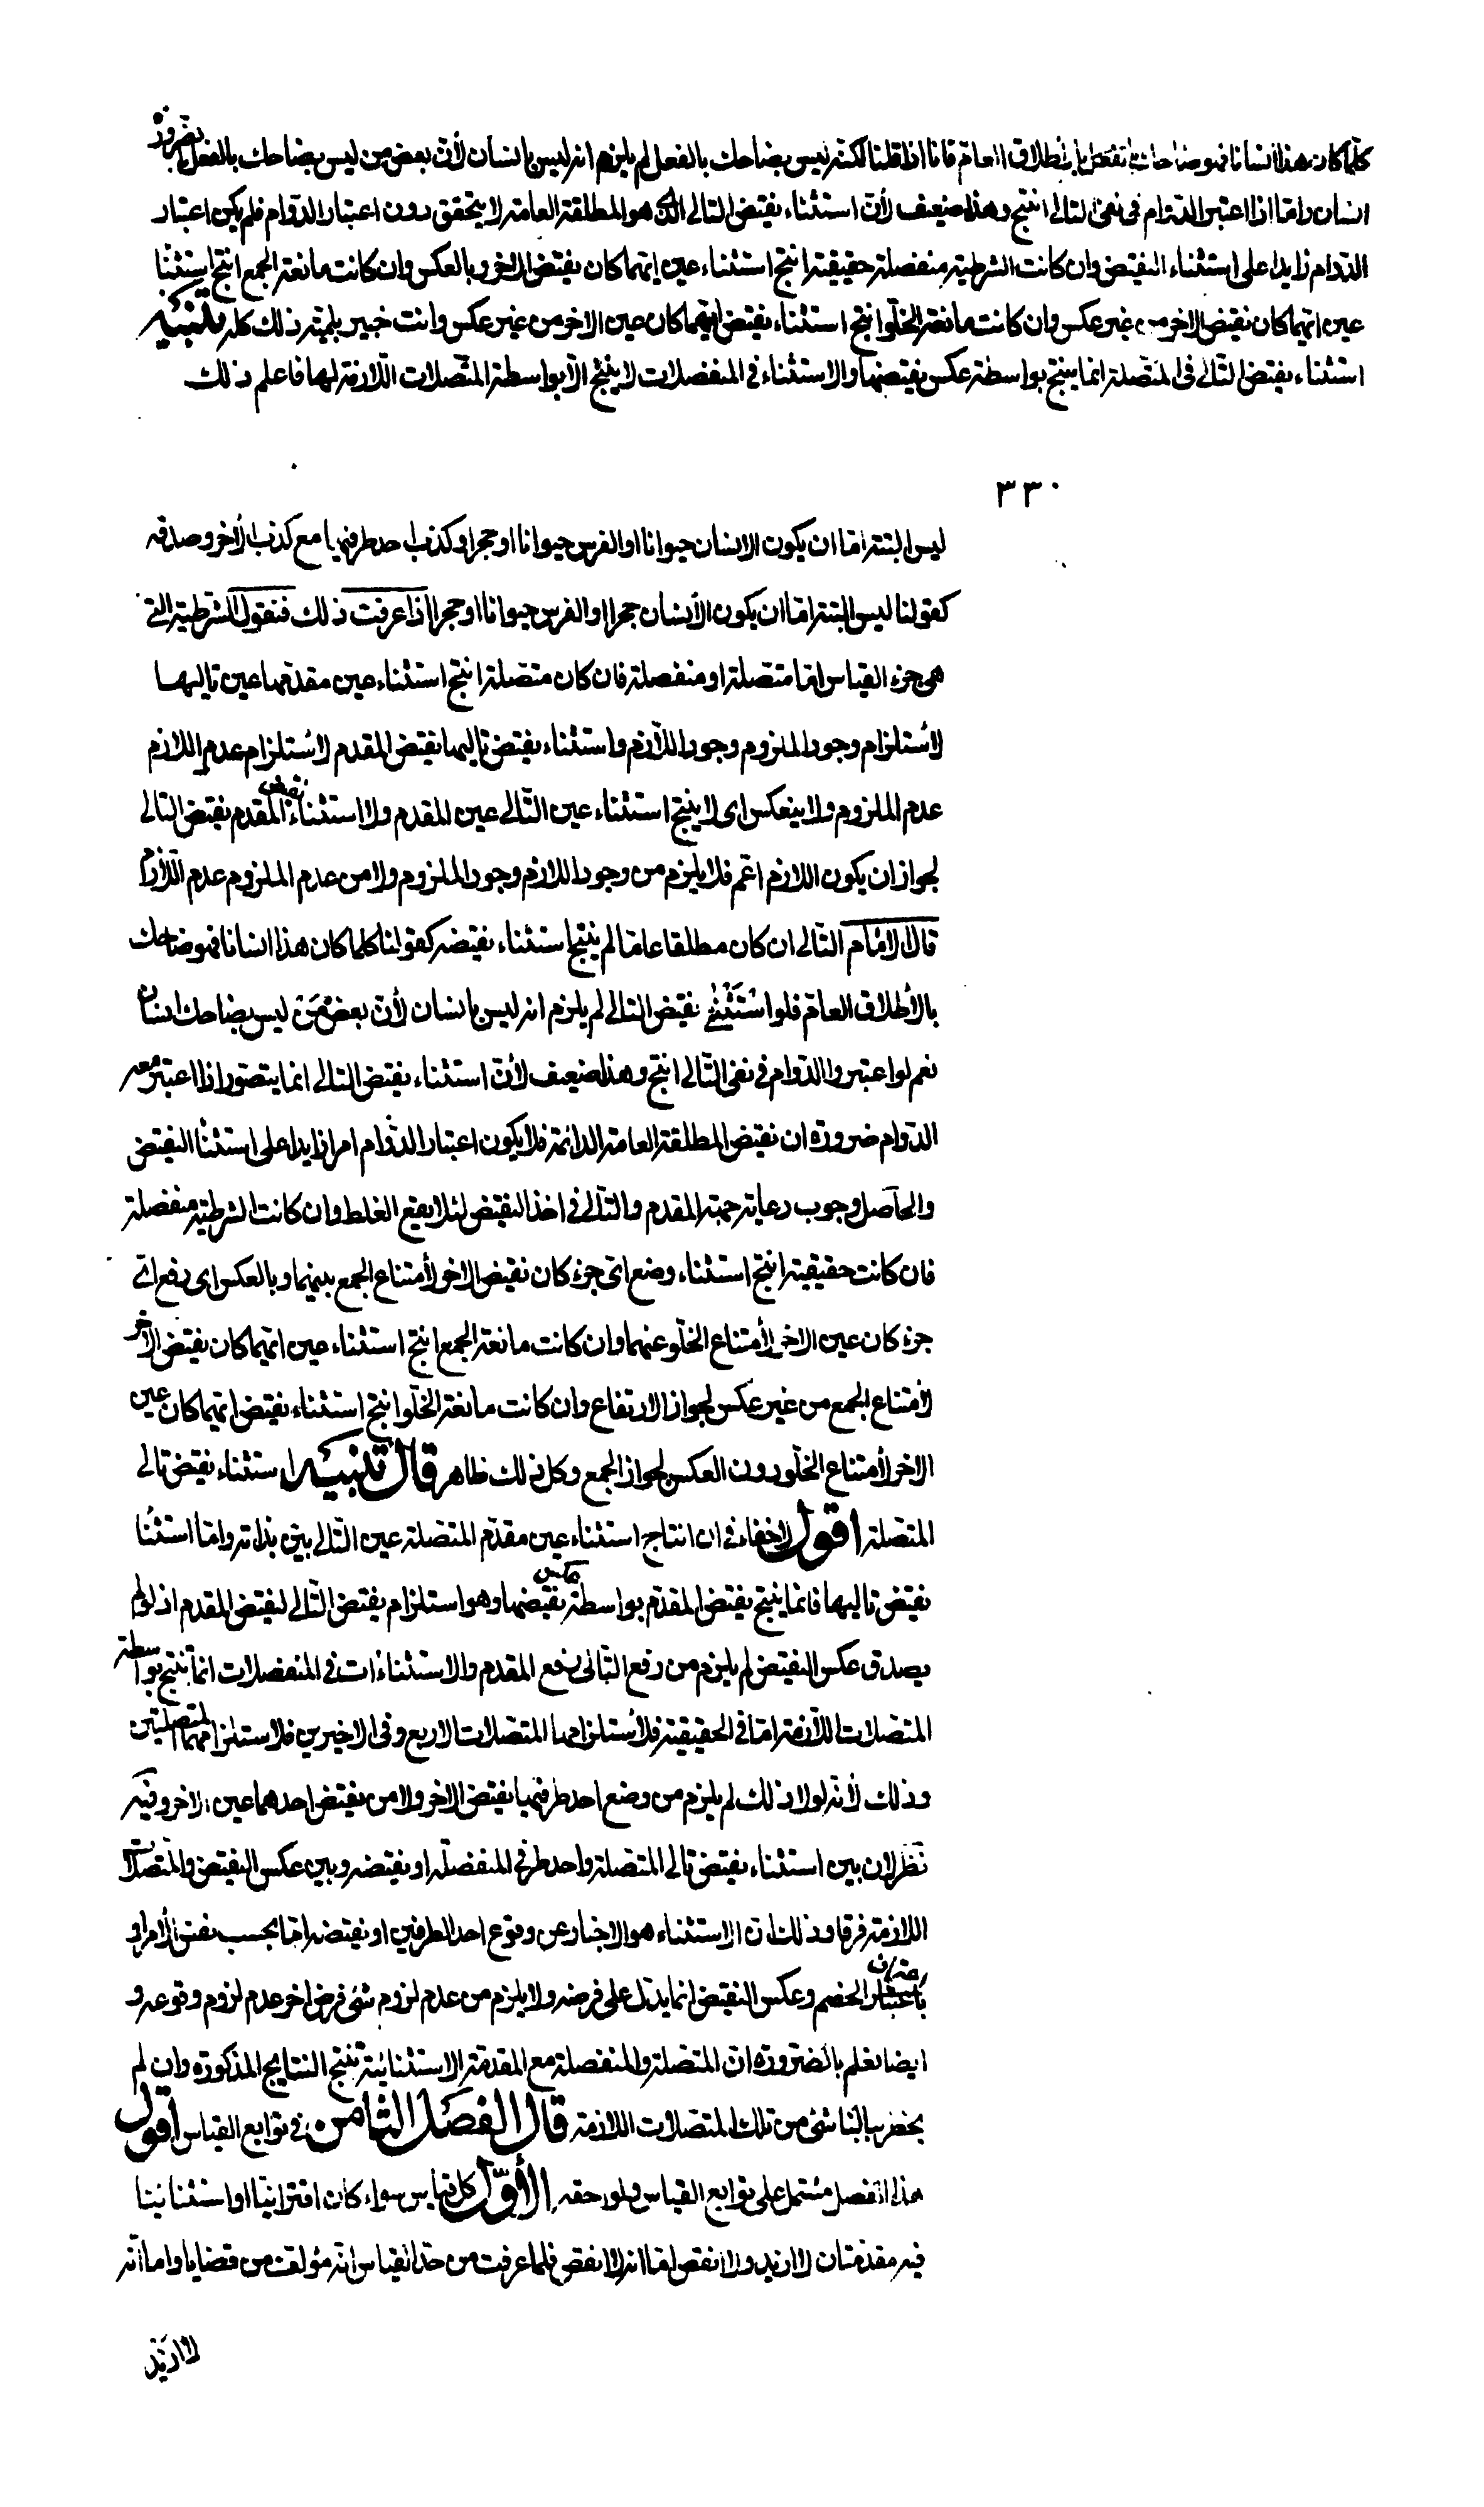 كلما كان هذا انسانا فهو ضاحك بالفعل بالاطلاق العام فانا اذا قلنا لكنه ليس بضاحك بالفعل لم يلزم انه ليس بانسان لأن بعض من ليس بضاحك بالفعل بضرورة
انسان دائما اذا اعتبر الدوام فى نفى التالى انتج وهذا ضعيف لأن استثناء نقيض التالى الذى هو المطلقة العامة لا يتحقق دون اعتبار الدوام فلم يكن اعتبار
الدوام زايدا على استثناء النقيض وان كانت الشرطية منفصلة حقيقية انتج استثناء عين ايهما كان نقيض الاخر وبالعكس وان كانت مانعة الجمع انتج استثنا
عين ايهما كان نقيض الاخر من غير عكس وان كانت مانعة الخلو انتج استثناء نقيض ايهما كان عين الاخر من غير عكس وانت خبير بلمية ذلك كله تنبيه
استثناء نقيض التالى فى المتصلة انما ينتج بواسطة عكس نقيضها والاستثناء فى المنفصلات لا ينتج الا بواسطة المتصلات اللازمة لها فاعلم ذلك
٣٣٠
ليس البتة اما ان يكون الانسان حيوانا او الفرس حيوانا او حجرا وكذب احد طرفيها مع كذب الاخر وصدقه
كقولنا ليس البتة اما ان يكون الانسان حجرا او الفرس حيوانا او حجرا اذا عرفت ذلك فنقول الشرطية التى
هى جزء القياس اما متصلة او منفصلة فان كان متصلة انتج استثناء عين مقدمها عين تاليها
لاستلزام وجود الملزوم وجود اللازم واستثناء نقيض تاليها نقيض المقدم لاستلزام عدم اللازم
عدم الملزوم ولا ينعكس اى لا ينتج استثناء عين التالى عين المقدم ولا استثناء نقيض المقدم نقيض التالى
لجواز ان يكون اللازم اعم فلا يلزم من وجود اللازم وجود الملزوم ولا من عدم الملزوم عدم اللازم
قال الامام التالى ان كان مطلقا عاما لم ينتج استثناء نقيضه كقولنا كلما كان هذا انسانا فهو ضاحك
بالأطلاق العام فلو استثنى نقيض التالى لم يلزم انه ليس بانسان لأن بعض من ليس بضاحك انسان
نعم لو اعتبروا الدوام فى نفى التالى انتج وهذا ضعيف لأن استثناء نقيض التالى انما يتصور اذا اعتبر معه
الدوام ضرورة ان نقيض المطلقة العامة الدائمة فلا يكون اعتبار الدوام امرا زايدا على استثنا النقيض
والحاصل وجوب رعاية جهة المقدم والتالى فى اخذ النقيض لئلا يقع الغلط وان كانت الشرطية منفصلة
فان كانت حقيقية انتج استثناء وضع اى جزء كان نقيض الاخر لأمتناع الجمع بينهما وبالعكس اى رفع اى
جزء كان عين الاخر لأمتناع الخلو عنهما وان كانت مانعة الجمع انتج استثناء عين ايهما كان نقيض الاخر
لأمتناع الجمع من غير عكس لجواز الارتفاع وان كانت مانعة الخلو انتج استثناء نقيض ايهما كان عين
الاخر لأمتناع الخلو دون العكس لجواز الجمع وكل ذلك ظاهر قال تنبيه استثناء نقيض تالى
المتصلة اقول لاخفاء فى ان انتاج استثناء عين مقدم المتصلة عين التالى بين بذاته واما استثنا
نقيض تاليها فانما ينتج نقيض المقدم بواسطة عكس نقيضها وهو استلزام نقيض التالى لنقيض المقدم اذ لو لم
يصدق عكس النقيض لم يلزم من رفع التالى رفع المقدم والاستثناءات فى المنفصلات انما تنتج بواسطة
المتصلات اللازمة اما فى الحقيقية فلأستلزامها المتصلات الاربع وفى الاخيرين فلاستلزامهما المتصلتين
وذلك لأنه لولا ذلك لم يلزم من وضع احد طرفيها نقيض الاخر ولا من نقيض احدهما عين الاخر وفيه
نظر لان بين استثناء نقيض تالى المتصلة واحد طرفى المنفصلة او نقيضه وبين عكس النقيض والمتصلات
اللازمة فرقا وذلك ان الاستثناء هو الاخبار عن وقوع احد الطرفين او نقيضه اما بحسب نفس الأمر او
باعتبار الخصم وعكس النقيض انما يدل على فرضه ولا يلزم من عدم لزوم شئ فرض اخر عدم لزوم وقوعه و
ايضا نعلم بالضرورة ان المتصلة والمنفصلة مع المقدمة الاستثنائية تنتج النتايج المذكورة وان لم
يخطر ببالنا شئ من تلك المتصلات اللازمة قال الفصل الثامن فى توابع القياس اقول
هذا الفصل مشتمل على توابع القياس ولواحقه الأول كل قياس سواء كان اقترانيا او استثنائيا
فيه مقدمتان لا ازيد ولا انقص اما انه لا انقص فلما عرفت من حد القياس انه مؤلف من قضايا واما انه
لا ازيد